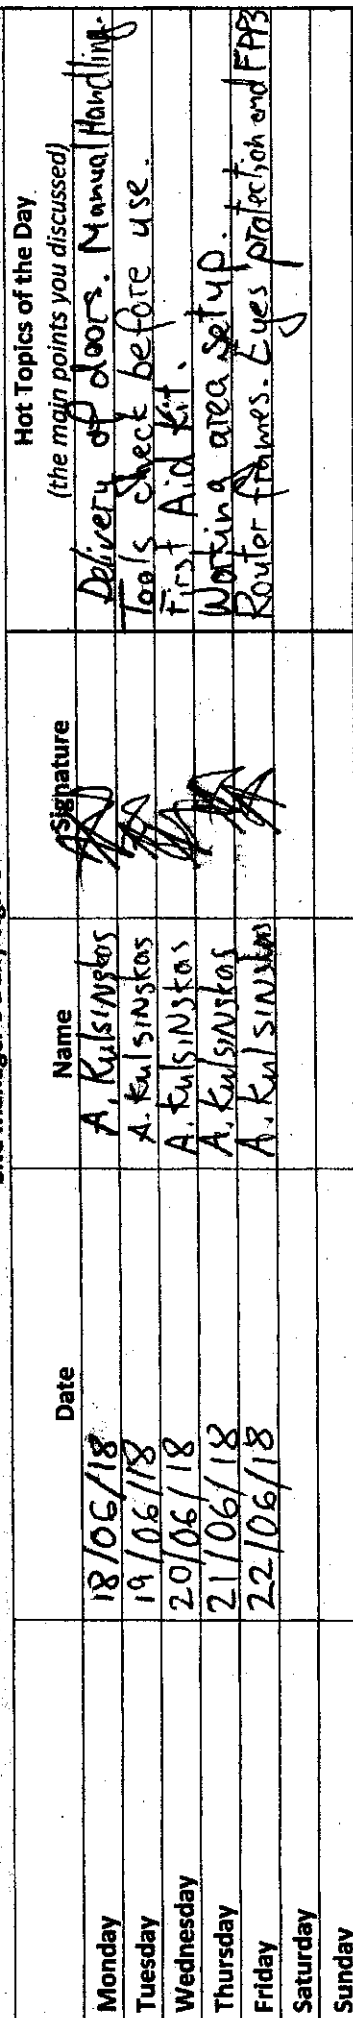 Date Name Signature Hot Topics of the Day
(the main points you discussed)
Monday 18/06/18 A. Kulsinskas Delivery of doors. Manual Handling.
Tuesday 19/06/18 A. Kulsinskas Tools check before use.
Wednesday 20/06/18 A. Kulsinskas First Aid Kit.
Thursday 21/06/18 A. Kulsinskas Working area setup.
Friday 22/06/18 A. Kulsinskas Router frames. Eyes protection and FPP3
Saturday
Sunday